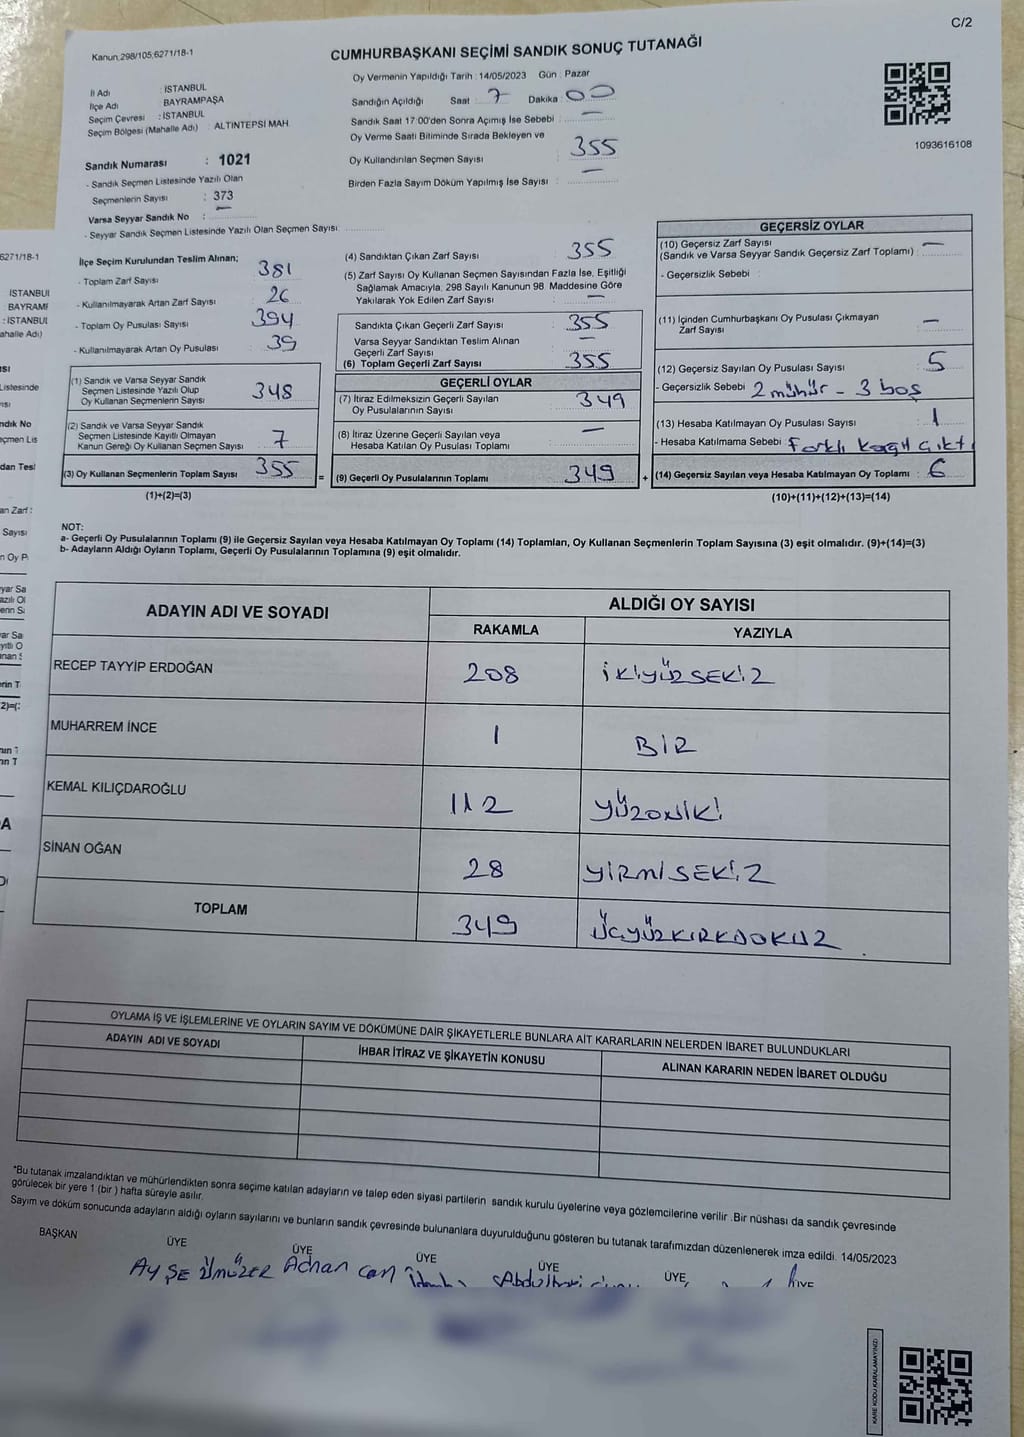 C/2
Kanun,298/105;6271/18-1
CUMHURBAŞKANI SEÇİMİ SANDIK SONUÇ TUTANAĞI
İl Adı : İSTANBUL
İlçe Adı BAYRAMPAŞA
Seçim Çevresi : İSTANBUL
Seçim Bölgesi (Mahalle Adı) : ALTINTEPSİ MAH.
Sandık Numarası : 1021
- Sandık Seçmen Listesinde Yazılı Olan
Seçmenlerin Sayısı : 373
Varsa Seyyar Sandık No : —
- Seyyar Sandık Seçmen Listesinde Yazılı Olan Seçmen Sayısı:
Oy Vermenin Yapıldığı Tarih : 14/05/2023 Gün : Pazar
Sandığın Açıldığı Saat : 7 Dakika : 00
Sandık Saat 17:00'den Sonra Açımış İse Sebebi : —
Oy Verme Saati Bitiminde Sırada Bekleyen ve
Oy Kullandırılan Seçmen Sayısı : 355
Birden Fazla Sayım Döküm Yapılmış İse Sayısı : —
1093616108
İlçe Seçim Kurulundan Teslim Alınan;
- Toplam Zarf Sayısı 381
- Kullanılmayarak Artan Zarf Sayısı 26
- Toplam Oy Pusulası Sayısı 394
- Kullanılmayarak Artan Oy Pusulası 39
(1) Sandık ve Varsa Seyyar Sandık
Seçmen Listesinde Yazılı Olup
Oy Kullanan Seçmenlerin Sayısı 348
(2) Sandık ve Varsa Seyyar Sandık
Seçmen Listesinde Kayıtlı Olmayan
Kanun Gereği Oy Kullanan Seçmen Sayısı 7
(3) Oy Kullanan Seçmenlerin Toplam Sayısı 355
(1)+(2)=(3)
(4) Sandıktan Çıkan Zarf Sayısı 355
(5) Zarf Sayısı Oy Kullanan Seçmen Sayısından Fazla İse, Eşitliği
Sağlamak Amacıyla, 298 Sayılı Kanunun 98. Maddesine Göre
Yakılarak Yok Edilen Zarf Sayısı —
Sandıkta Çıkan Geçerli Zarf Sayısı 355
Varsa Seyyar Sandıktan Teslim Alınan
Geçerli Zarf Sayısı —
(6) Toplam Geçerli Zarf Sayısı 355
GEÇERLİ OYLAR
(7) İtiraz Edilmeksizin Geçerli Sayılan
Oy Pusulalarının Sayısı 349
(8) İtiraz Üzerine Geçerli Sayılan veya
Hesaba Katılan Oy Pusulası Toplamı —
= (9) Geçerli Oy Pusulalarının Toplamı 349 +
GEÇERSİZ OYLAR
(10) Geçersiz Zarf Sayısı
(Sandık ve Varsa Seyyar Sandık Geçersiz Zarf Toplamı) : —
- Geçersizlik Sebebi :
(11) İçinden Cumhurbaşkanı Oy Pusulası Çıkmayan
Zarf Sayısı : —
(12) Geçersiz Sayılan Oy Pusulası Sayısı : 5
- Geçersizlik Sebebi : 2 mühür - 3 boş
(13) Hesaba Katılmayan Oy Pusulası Sayısı : 1
- Hesaba Katılmama Sebebi : Farklı kağıt çıktı
(14) Geçersiz Sayılan veya Hesaba Katılmayan Oy Toplamı : 6
(10)+(11)+(12)+(13)=(14)
NOT:
a- Geçerli Oy Pusulalarının Toplamı (9) ile Geçersiz Sayılan veya Hesaba Katılmayan Oy Toplamı (14) Toplamları, Oy Kullanan Seçmenlerin Toplam Sayısına (3) eşit olmalıdır. (9)+(14)=(3)
b- Adayların Aldığı Oyların Toplamı, Geçerli Oy Pusulalarının Toplamına (9) eşit olmalıdır.
ADAYIN ADI VE SOYADI ALDIĞI OY SAYISI
RAKAMLA YAZIYLA
RECEP TAYYİP ERDOĞAN 208 İKİYÜZSEKİZ
MUHARREM İNCE 1 BİR
KEMAL KILIÇDAROĞLU 112 YÜZONİKİ
SİNAN OĞAN 28 YİRMİSEKİZ
TOPLAM 349 ÜÇYÜZKIRKDOKUZ
OYLAMA İŞ VE İŞLEMLERİNE VE OYLARIN SAYIM VE DÖKÜMÜNE DAİR ŞİKAYETLERLE BUNLARA AİT KARARLARIN NELERDEN İBARET BULUNDUKLARI
ADAYIN ADI VE SOYADI İHBAR İTİRAZ VE ŞİKAYETİN KONUSU ALINAN KARARIN NEDEN İBARET OLDUĞU
*Bu tutanak imzalandıktan ve mühürlendikten sonra seçime katılan adayların ve talep eden siyasi partilerin sandık kurulu üyelerine veya gözlemcilerine verilir .Bir nüshası da sandık çevresinde
görülecek bir yere 1 (bir ) hafta süreyle asılır.
Sayım ve döküm sonucunda adayların aldığı oyların sayılarını ve bunların sandık çevresinde bulunanlara duyurulduğunu gösteren bu tutanak tarafımızdan düzenlenerek imza edildi. 14/05/2023
BAŞKAN ÜYE ÜYE ÜYE ÜYE ÜYE
AYŞE Adnan can
KARE KODU KARALAMAYINIZ!
6271/18-1
İSTANBUL
: İSTANBUL